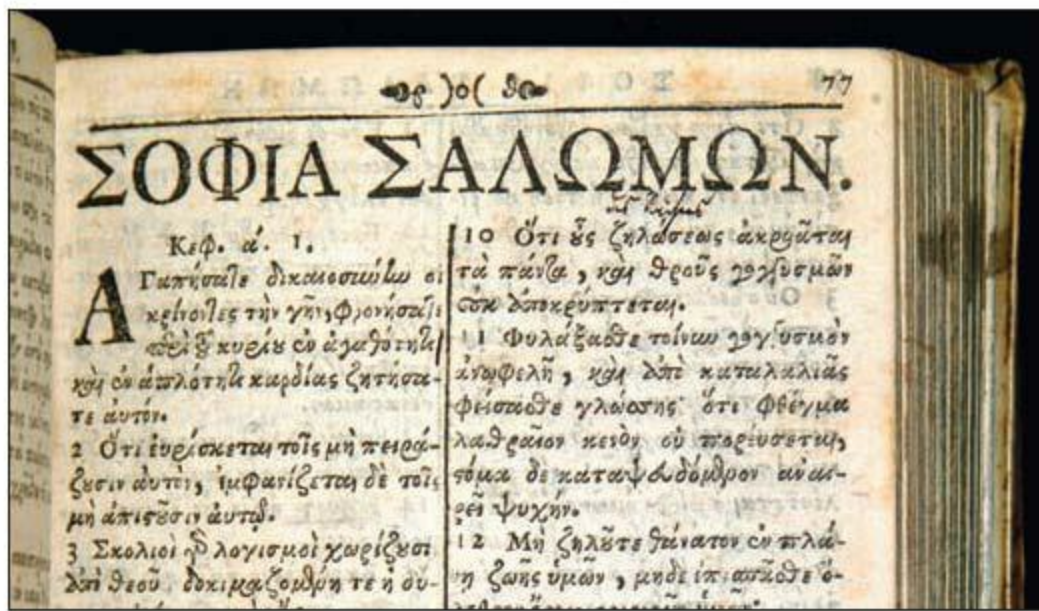 77
ΣΟΦΙΑ ΣΑΛΩΜΩΝ.
Κεφ. α΄. 1.
ΑΓαπήσατε δικαιοσύνην οἱ
κρίνοντες τὴν γῆν, φρονήσατε
περὶ τοῦ κυρίου ἐν ἀγαθότητι,
καὶ ἐν ἁπλότητι καρδίας ζητήσα-
τε ἀυτόν.
2 Ὅτι ἑυρίσκεται τοῖς μὴ πειρά-
ζουσιν ἀυτὸν, ἐμφανίζεται δὲ τοῖς
μὴ ἀπιστοῦσιν ἀυτῷ.
3 Σκολιοὶ γὰρ λογισμοὶ χωρίζουσι
ἀπὸ θεοῦ δοκιμαζομένη τε ἡ δύ-
10 Ὅτι οὖς ζηλώσεως ἀκροᾶται
τὰ πάντα, καὶ θροῦς γογγυσμῶν
οὐκ ἀποκρύπτεται.
11 Φυλάξασθε τοίνυν γογγυσμὸν
ἀνωφελῆ, καὶ ἀπὸ καταλαλιᾶς
φείσασθε γλώσσης· ὅτι φθέγμα
λαθραῖον κενὸν οὐ πορεύσεται,
στόμα δὲ καταψευδόμενον ἀναι-
ρεῖ ψυχήν.
12 Μὴ ζηλοῦτε θάνατον ἐν πλά-
νῃ ζωῆς ὑμῶν, μηδὲ ἐπισπᾶσθε ὄ-